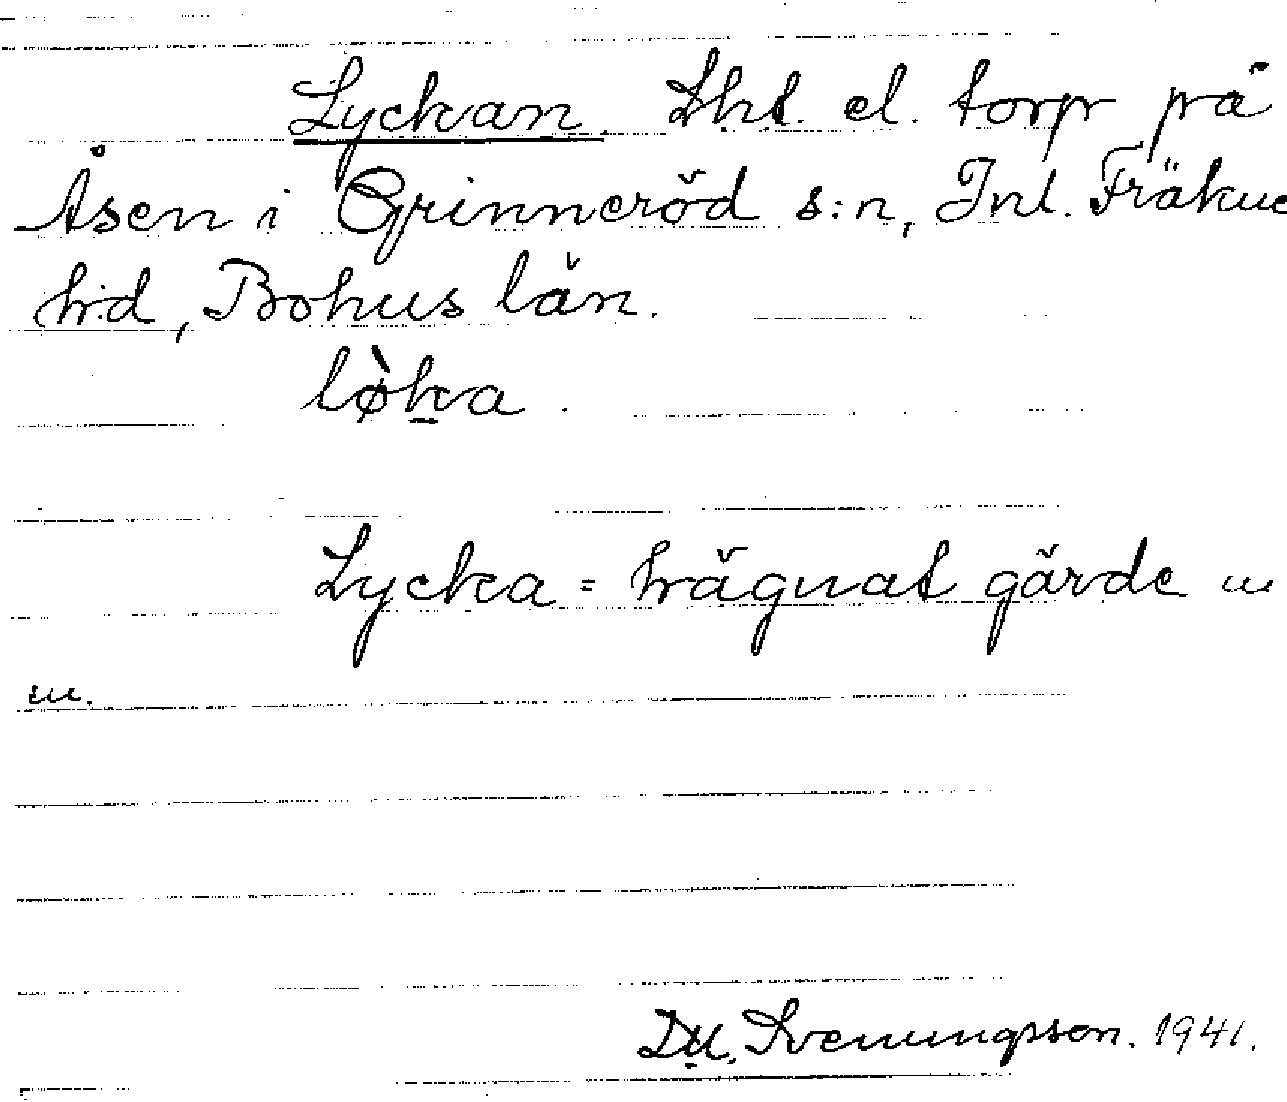 Lyckan Lht. el. torp på
Åsen i Grinneröd s:n, Inl. Fräkne
h:d, Bohus län.
lø̀ka.
Lycka = hägnat gärde m
m.
Svenungsson. 1941.